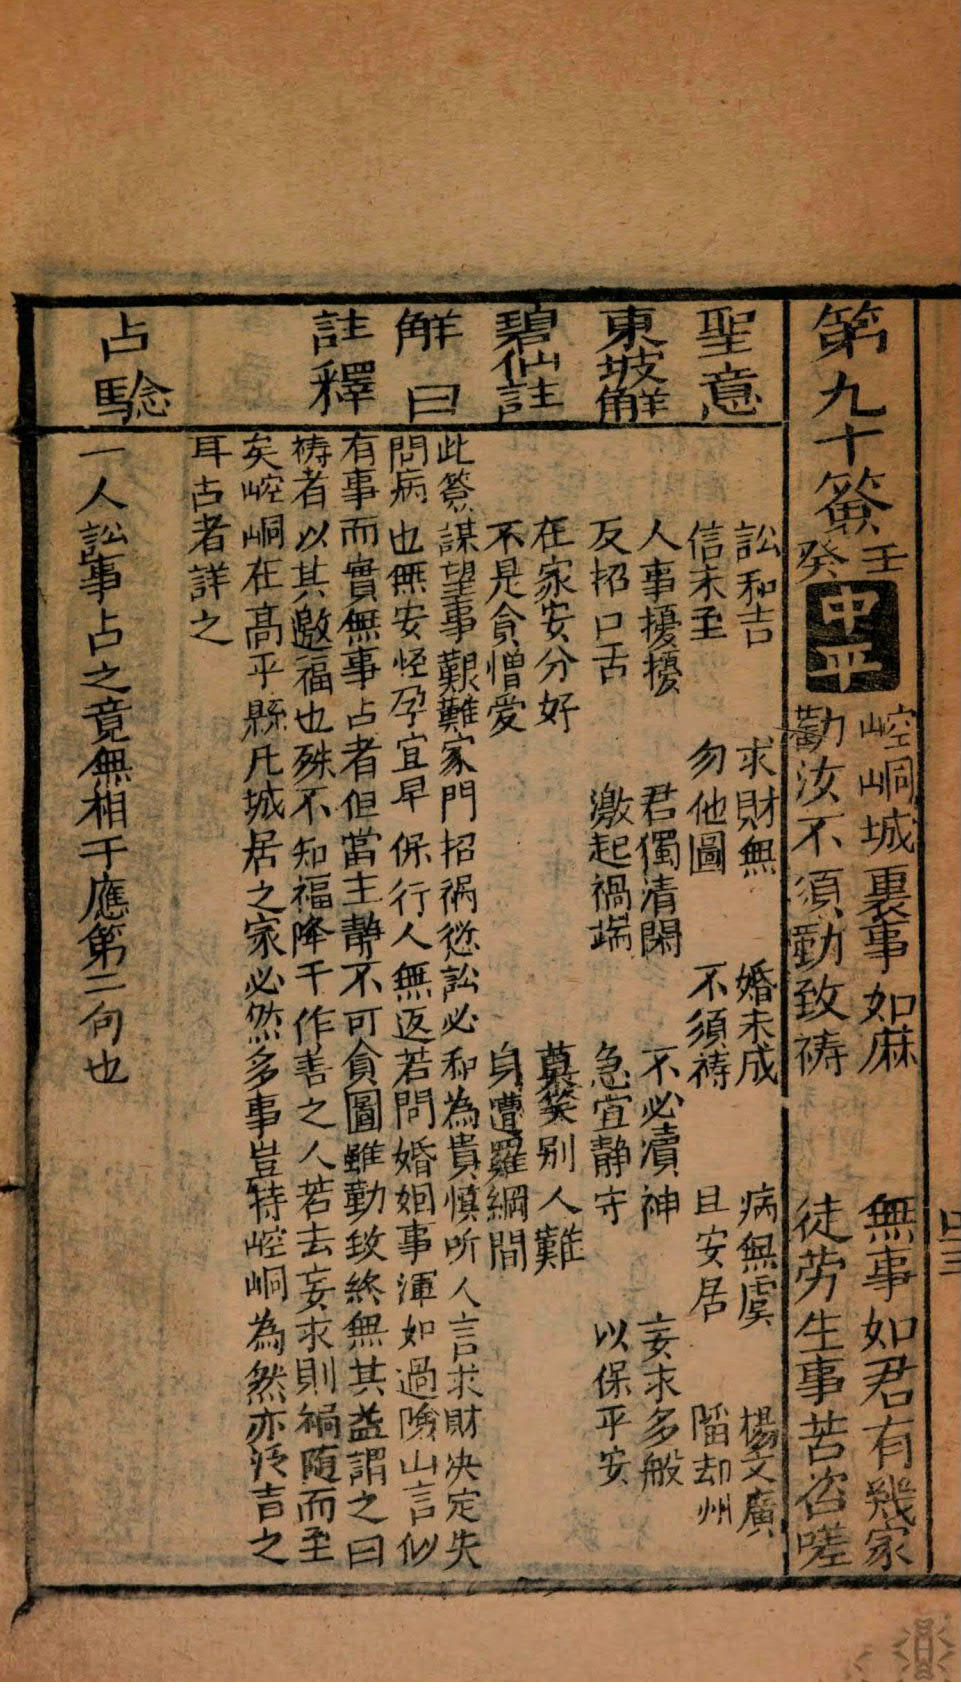 四三
第九十籤 壬癸 中平
崆峒城裏事如麻 無事如君有幾家
勸汝不須勤致祷 徒劳生事苦咨嗟
聖意
訟和吉 求財無 婚未成 病無虞 楊文廣
信未至 勿他圖 不須祷 且安居 䧟却州
東坡解
人事擾擾 君獨清閑 不必瀆神 妄求多般
反招口舌 激起禍端 急宜静守 以保平安
碧仙註
在家安分好 莫笑别人難
不是貪憎愛 身遭羅網間
解曰
此簽謀望事艱難家門招祸訟必和為貴慎听人言求財决定失
問病也無安怪孕宜早保行人無返若問婚姻事渾如過險山言似
註釋
有事而實無事占者但當主静不可貪圖雖勤致終無其益謂之曰
祷者以其邀福也殊不知福降于作善之人若去妄求則禍随而至
矣崆峒在高平縣凡城居之家必然多事豈特崆峒為然亦泛言之
耳占者詳之
占騐
一人訟事占之竟無相干應第二句也